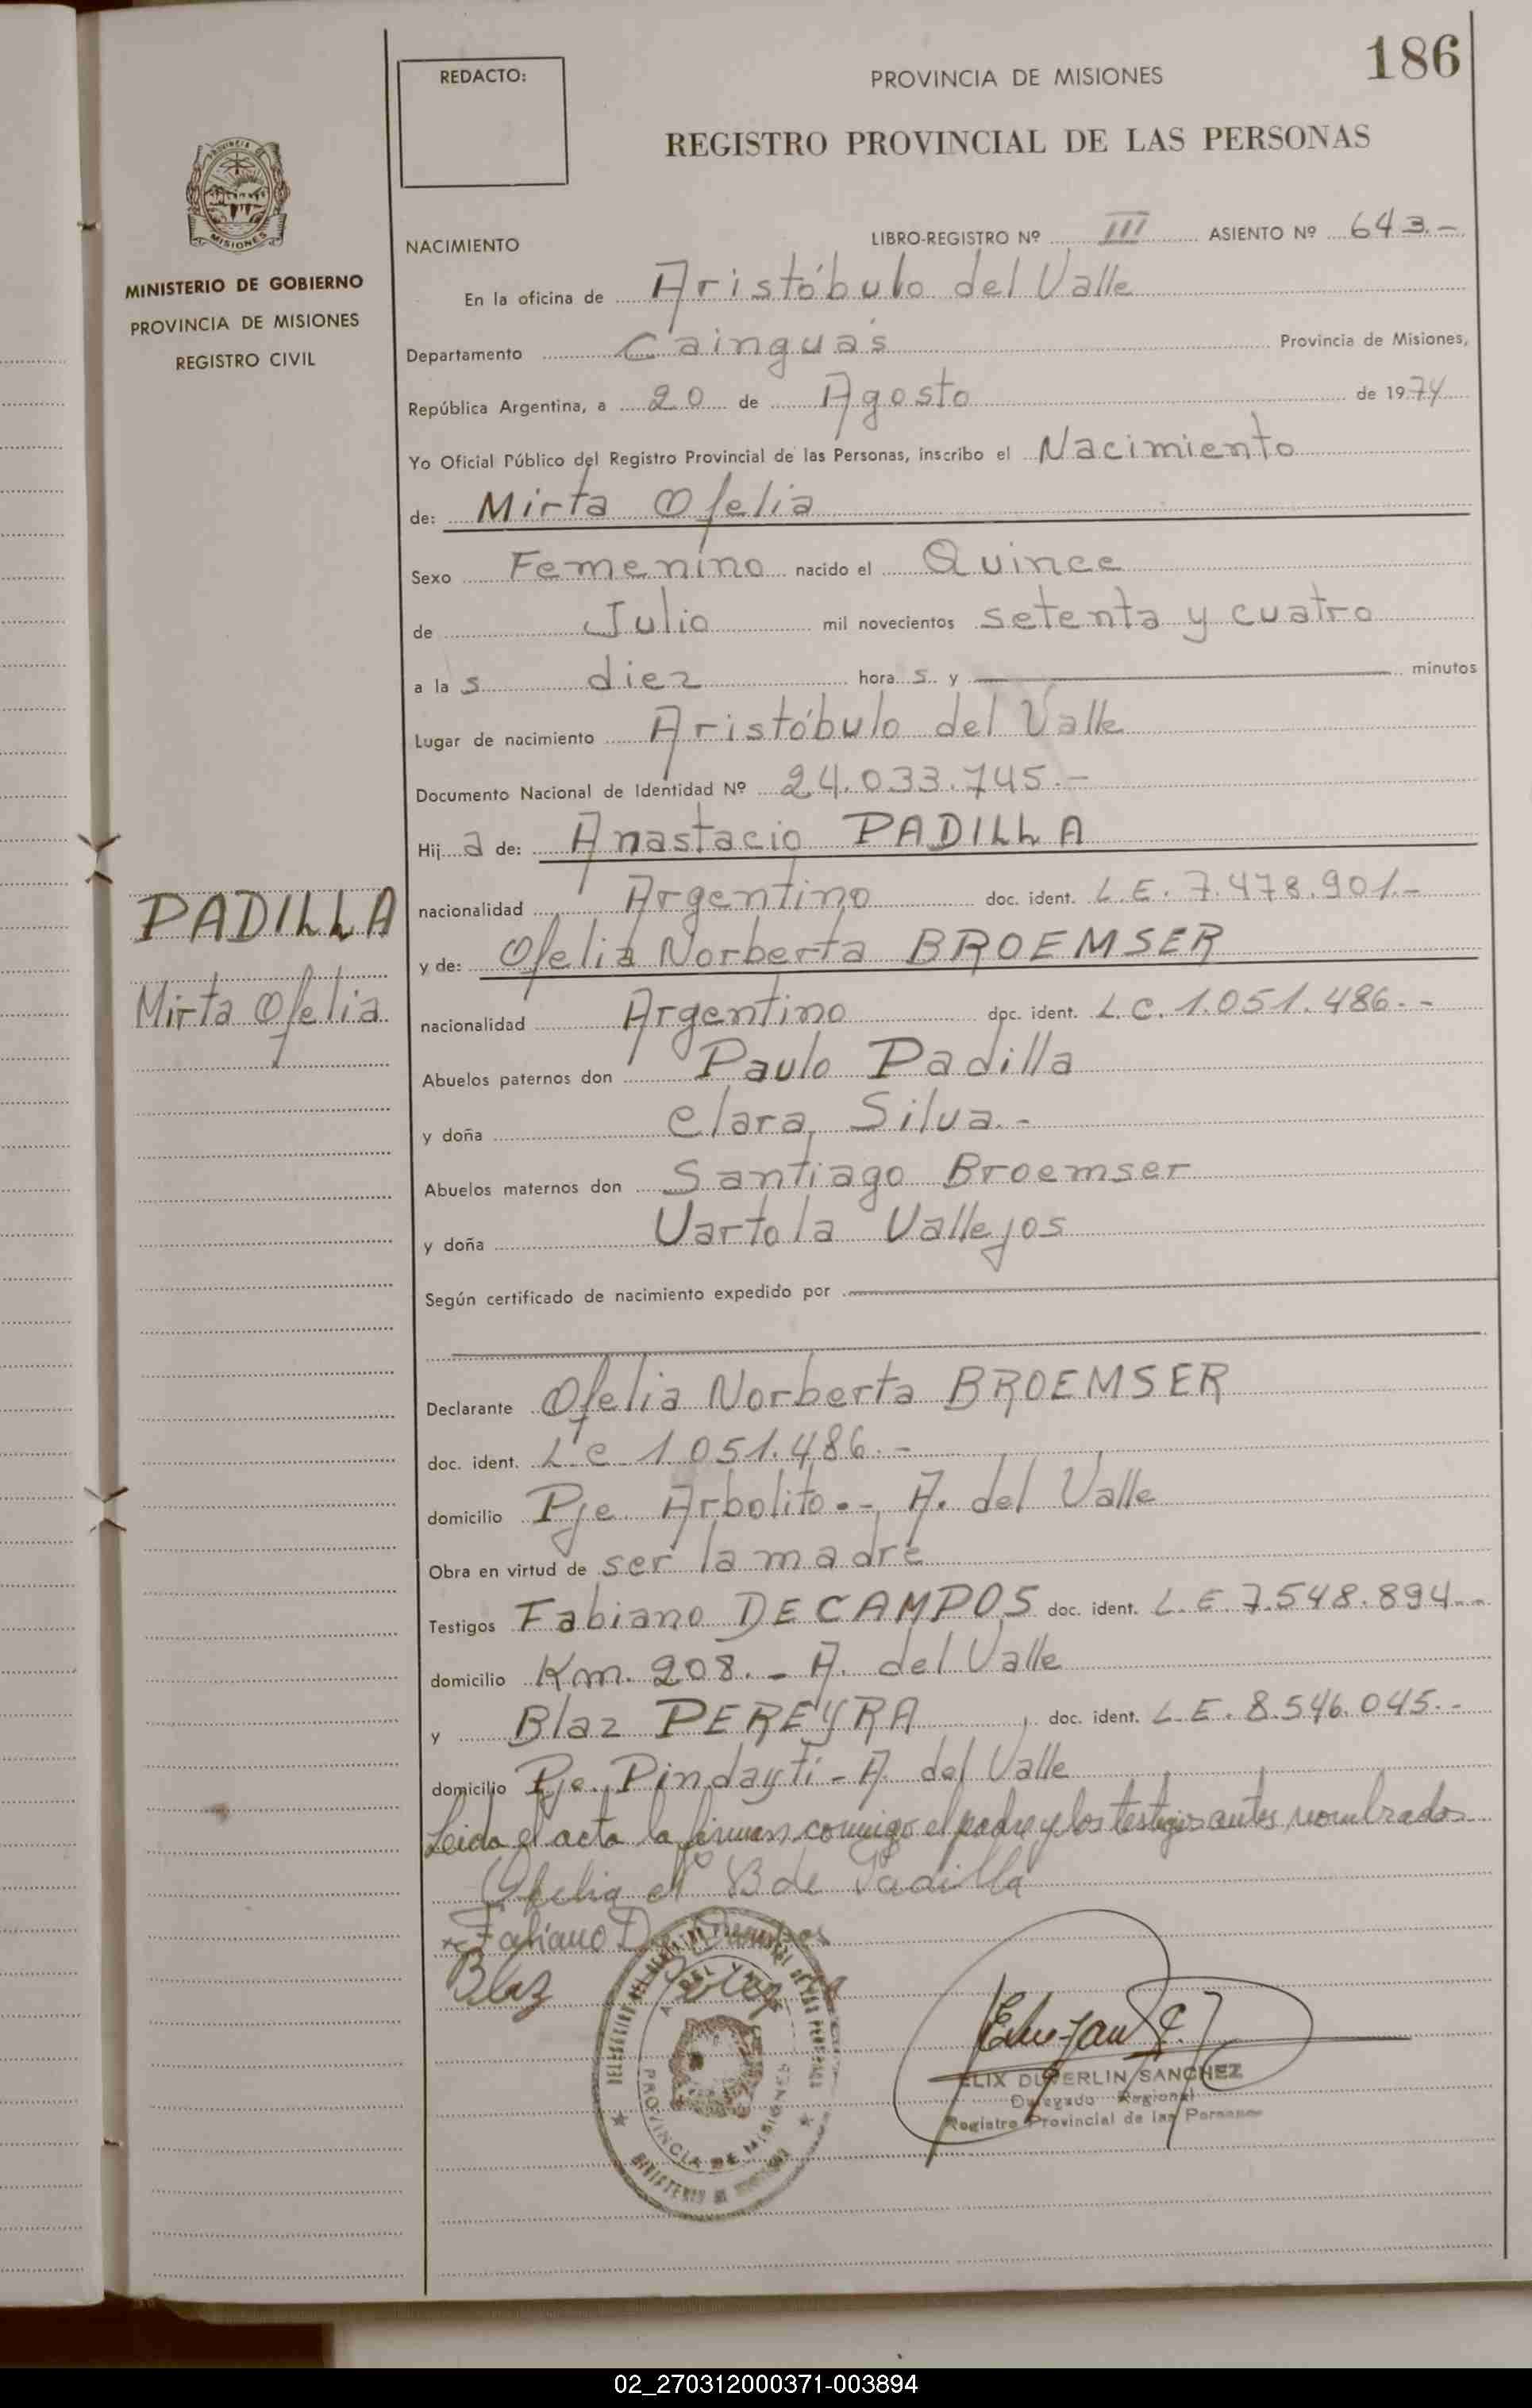 186
REDACTO:
PROVINCIA DE MISIONES
REGISTRO PROVINCIAL DE LAS PERSONAS
MISIONES
MINISTERIO DE GOBIERNO
PROVINCIA DE MISIONES
REGISTRO CIVIL
PADILLA
Mirta Ofelia
NACIMIENTO
LIBRO-REGISTRO Nº III ASIENTO Nº 643.-
En la oficina de Aristóbulo del Valle
Departamento Cainguás Provincia de Misiones,
República Argentina, a 20 de Agosto de 1974
Yo Oficial Público del Registro Provincial de las Personas, inscribo el Nacimiento
de: Mirta Ofelia
Sexo Femenino nacido el Quince
de Julio mil novecientos setenta y cuatro
a las diez horas y minutos
Lugar de nacimiento Aristóbulo del Valle
Documento Nacional de Identidad Nº 24.033.745.-
Hija de: Anastacio PADILLA
nacionalidad Argentino doc. ident. L.E. 7.478.901.-
y de: Ofelia Norberta BROEMSER
nacionalidad Argentino doc. ident. L.C. 1.051.486.-
Abuelos paternos don Paulo Padilla
y doña Clara Silva.-
Abuelos maternos don Santiago Broemser
y doña Vartola Vallejos
Según certificado de nacimiento expedido por
Declarante Ofelia Norberta BROEMSER
doc. ident. L.C. 1.051.486.-
domicilio Pje. Arbolito.- A. del Valle
Obra en virtud de ser la madre
Testigos Fabiano DE CAMPOS doc. ident. L.E. 7.548.894.-
domicilio Km. 208.- A. del Valle
y Blaz PEREYRA doc. ident. L.E. 8.546.045.-
domicilio Pje. Pindaytí - A. del Valle
Leida el acta la firman conmigo el padre y los testigos antes nombrados
Ofelia N B de Padilla
Fabiano De
Blaz
PROVINCIA DE MISIONES
ELIX DUVERLIN SANCHEZ
Delegado Regional
Registro Provincial de las Personas
02_270312000371-003894